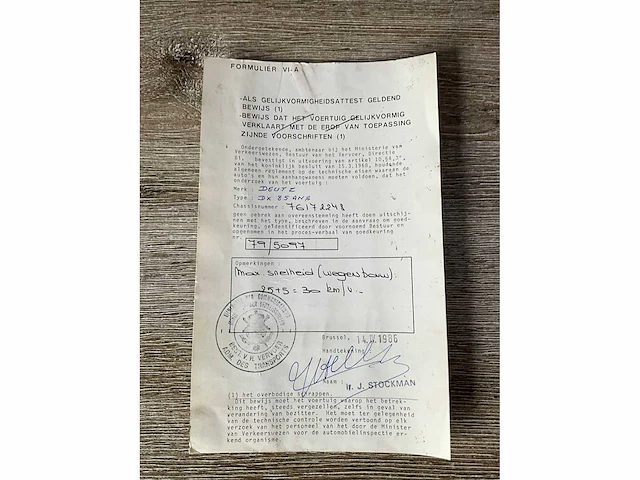 FORMULIER VI-A
-ALS GELIJKVORMIGHEIDSATTEST GELDEND
BEWIJS (1)
-BEWIJS DAT HET VOERTUIG GELIJKVORMIG
VERKLAART MET DE EROP VAN TOEPASSING
ZIJNDE VOORSCHRIFTEN (1)
Ondergetekende, ambtenaar bij het Ministerie van
Verkeerswezen, Bestuur van het Vervoer, Directie
B1. Bevestigt in uitvoering van artikel 10,§4,3°
van het koninklijk besluit van 15.3.1968, houdende
algemeen reglement op de technische eisen waaraan de
auto's en hun aanhangwagens moeten voldoen, dat het
onderzoek van het voertuig :
Merk : DEUTZ
Type : DX 85 ANS
Chassisnummer : 76172248
geen gebrek aan overeenstemming heeft doen uitschij-
nen met het type, beschreven in de aanvraag om goed-
keuring, geïdentificeerd door voornoemd Bestuur en
opgenomen in het proces-verbaal van goedkeuring
nr. 79/5097
Opmerkingen :
Max. snelheid (wegenbouw):
25+5 = 30 km/u.
Brussel, 14.IV.1986
Handtekening
ADM. DES TRANSPORTS
Naam : Ir. J. STOCKMAN
(1) het overbodige schrappen.
Dit bewijs moet het voertuig waarop het betrek-
king heeft, steeds vergezellen, zelfs in geval van
verandering van bezitter. Het moet ter gelegenheid
van de technische controle worden vertoond op elk
verzoek van het personeel van het door de Minister
van Verkeerswezen voor de automobielinspectie er-
kend organisme.